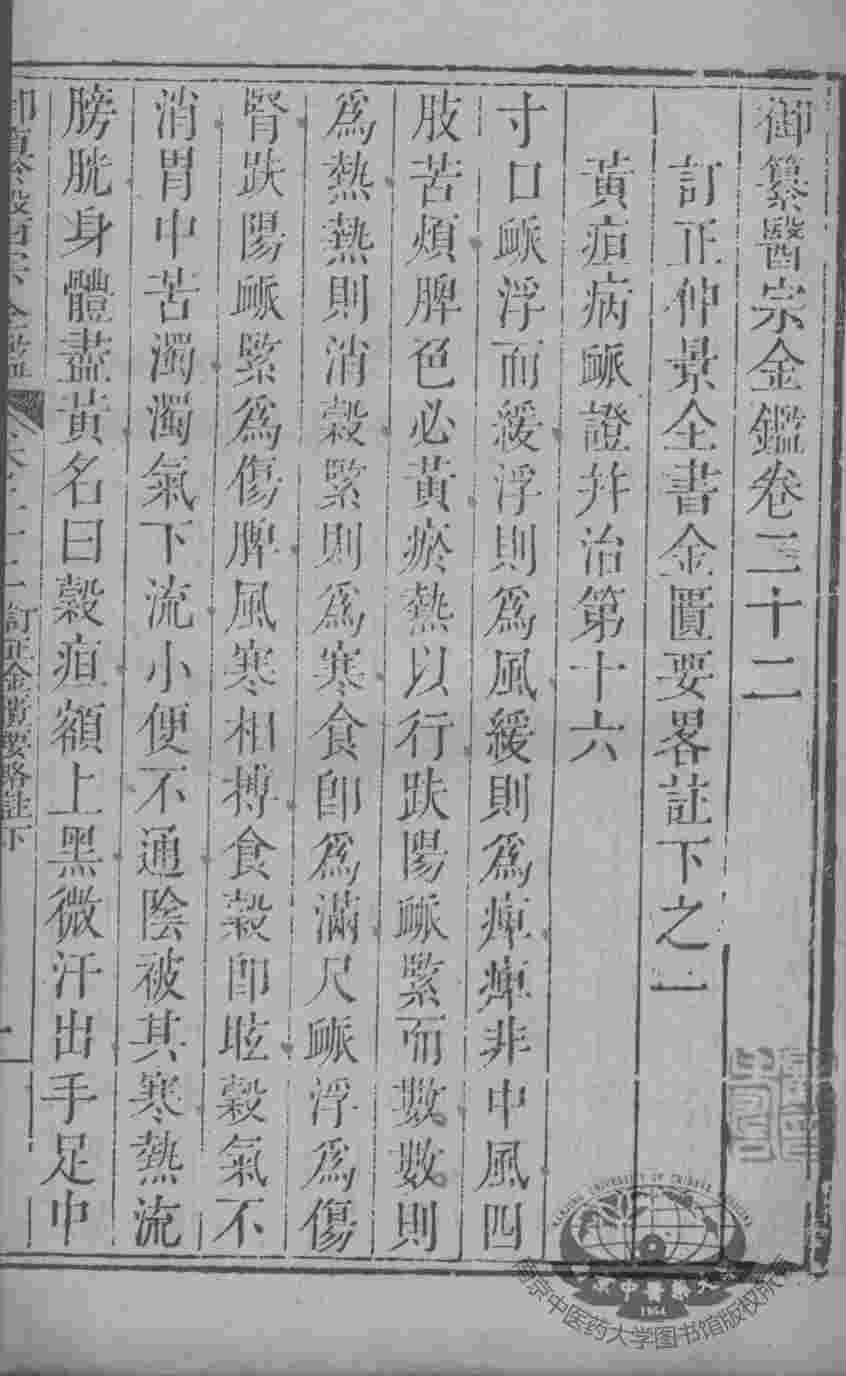 御纂醫宗金鑑卷二十二
訂正仲景全書金匱要畧註下之一
黃疸病脈證并治第十六
寸口脈浮而緩浮則爲風緩則爲痺痺非中風四
肢苦煩脾色必黃瘀熱以行趺陽脈緊而數數則
爲熱熱則消穀緊則爲寒食卽爲滿尺脈浮爲傷
腎趺陽脈緊爲傷脾風寒相摶食穀卽眩穀氣不
消胃中苦濁濁氣下流小便不通陰被其寒熱流
膀胱身體盡黃名曰穀疸額上黑微汗出手足中
訂正金匱要略註下
南京中医药大学图书馆版权所有
NANJING UNIVERSITY OF CHINESE MEDICINE
南京中醫藥大學
1954